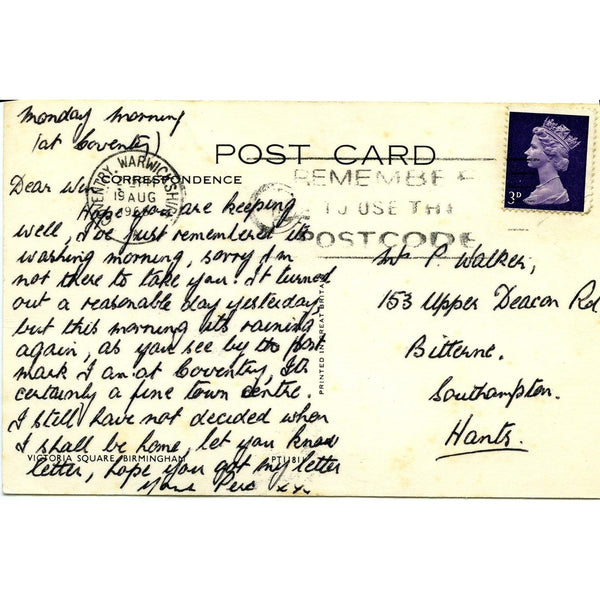 Monday morning
(at Coventry)
POST CARD
CORRESPONDENCE
COVENTRY WARWICKSHIRE
19 AUG
REMEMBER
TO USE THE
POSTCODE
3D
Dear Win
Hope you are keeping
well, I've just remembered its
washing morning, sorry I'm
not there to take you. It turned
out a reasonable day yesterday
but this morning its raining
again, as you see by the post
mark I am at Coventry, Its
certainly a fine town centre.
I still have not decided when
I shall be home, let you know
letter, hope you got my letter
Yours Perc xx
VICTORIA SQUARE, BIRMINGHAM
PRINTED IN GREAT BRITAIN
P Walker,
153 Upper Deacon Rd
Bitterne.
Southampton.
Hants.